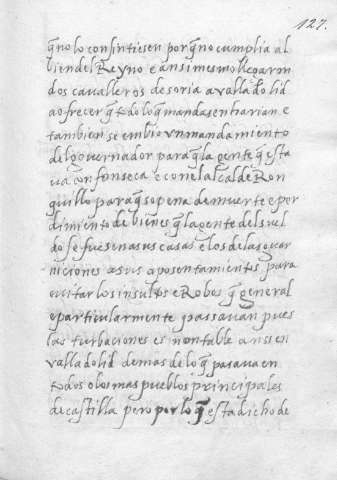 127.
q̃ no lo consintiesen porq̃ no cumplia al
bien del Reyno e ansimesmo llegaron
dos cavalleros de soria a valladolid
a ofrecer q̃ todo lo q̃ mandasen harian e
tambien se embio vn mandamiento
del governador para q̃ la gente q̃ esta
va con fonseca e con el alcalde Ron
quillo para q̃ so pena de muerte e per
dimiento de bienes q̃ la gente del suel
do se fuesen a sus casas e los de las guar
niciones a sus aposentamientos para
evitar los insultos e Robos q̃ general
e particularmente passavan pues
las turbaciones es notable anssen
valladolid demas de lo q̃ pasava en
todos o los mas pueblos principales
de castilla pero por lo q̃ esta dicho de